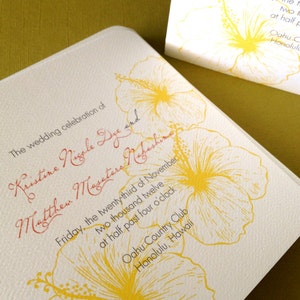 The wedding celebration of
Kristine Nicole Dye and
Matthew Masateru
Friday, the twenty-third of November
two thousand twelve
at half past four o'clock
Oahu Country Club
Honolulu, Hawaii
two thousand
at half past
Oahu Country
Honolulu,